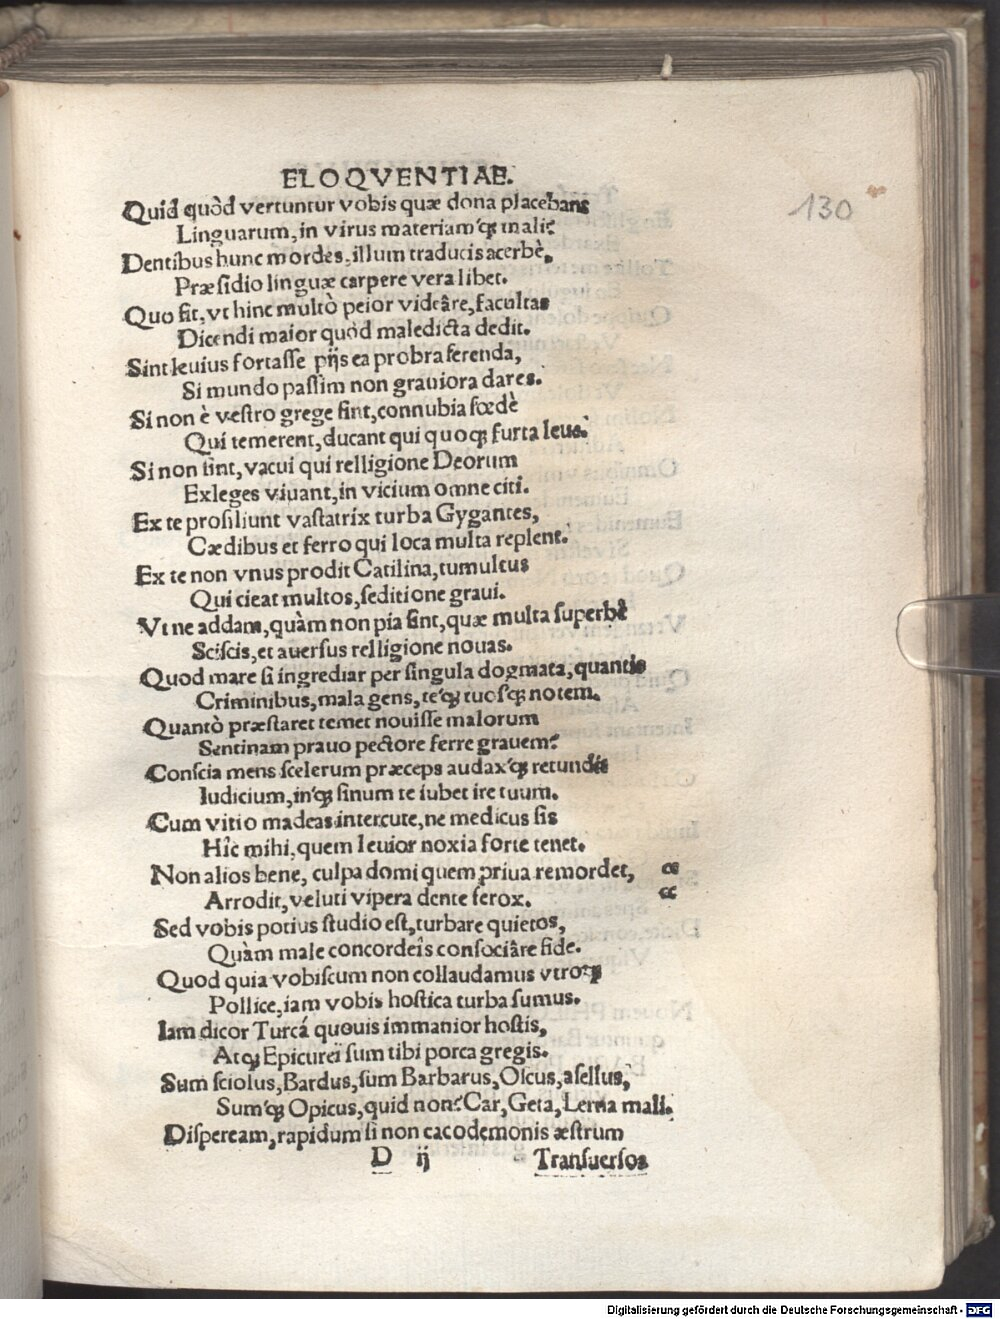 ELOQVENTIAE.
130
Quid quòd vertuntur vobis quæ dona placebant
Linguarum, in virus materiamq́ꝫ mali?
Dentibus hunc mordes, illum traducis acerbè,
Præsidio linguæ carpere vera libet.
Quo fit, vt hinc multò peior videâre, facultas
Dicendi maior quòd maledicta dedit.
Sint leuius fortasse pijs ea probra ferenda,
Si mundo passim non grauiora dares.
Si non è vestro grege sint, connubia fœdè
Qui temerent, ducant qui quoqꝫ furta leue.
Si non sint, vacui qui relligione Deorum
Exleges viuant, in vicium omne citi.
Ex te prosiliunt vastatrix turba Gygantes,
Cædibus et ferro qui loca multa replent.
Ex te non vnus prodit Catilina, tumultus
Qui cieat multos, seditione graui.
Vt ne addam, quàm non pia sint, quæ multa superbè
Sciscis, et auersus relligione nouas.
Quod mare si ingrediar per singula dogmata, quantis
Criminibus, mala gens, teq́ꝫ tuosqꝫ notem.
Quantò præstaret temet nouisse malorum
Sentinam prauo pectore ferre grauem?
Conscia mens scelerum præceps audaxq́ꝫ retundit
Iudicium, inq́ꝫ sinum te iubet ire tuum.
Cum vitio madeas intercute, ne medicus sis
Hîc mihi, quem leuior noxia forte tenet.
Non alios bene, culpa domi quem priua remordet, ‟
Arrodit, veluti vipera dente ferox. ‟
Sed vobis potius studio est, turbare quietos,
Quàm male concordeîs consociâre fide.
Quod quia vobiscum non collaudamus vtroqꝫ
Pollice, iam vobis hostica turba sumus.
Iam dicor Turcá quouis immanior hostis,
Atqꝫ Epicurei sum tibi porca gregis.
Sum sciolus, Bardus, sum Barbarus, Olcus, asellus,
Sumq́ꝫ Opicus, quid non? Car, Geta, Lerna mali.
Dispeream, rapidum si non cacodemonis æstrum
D ij Transuersos
Digitalisierung gefördert durch die Deutsche Forschungsgemeinschaft - DFG